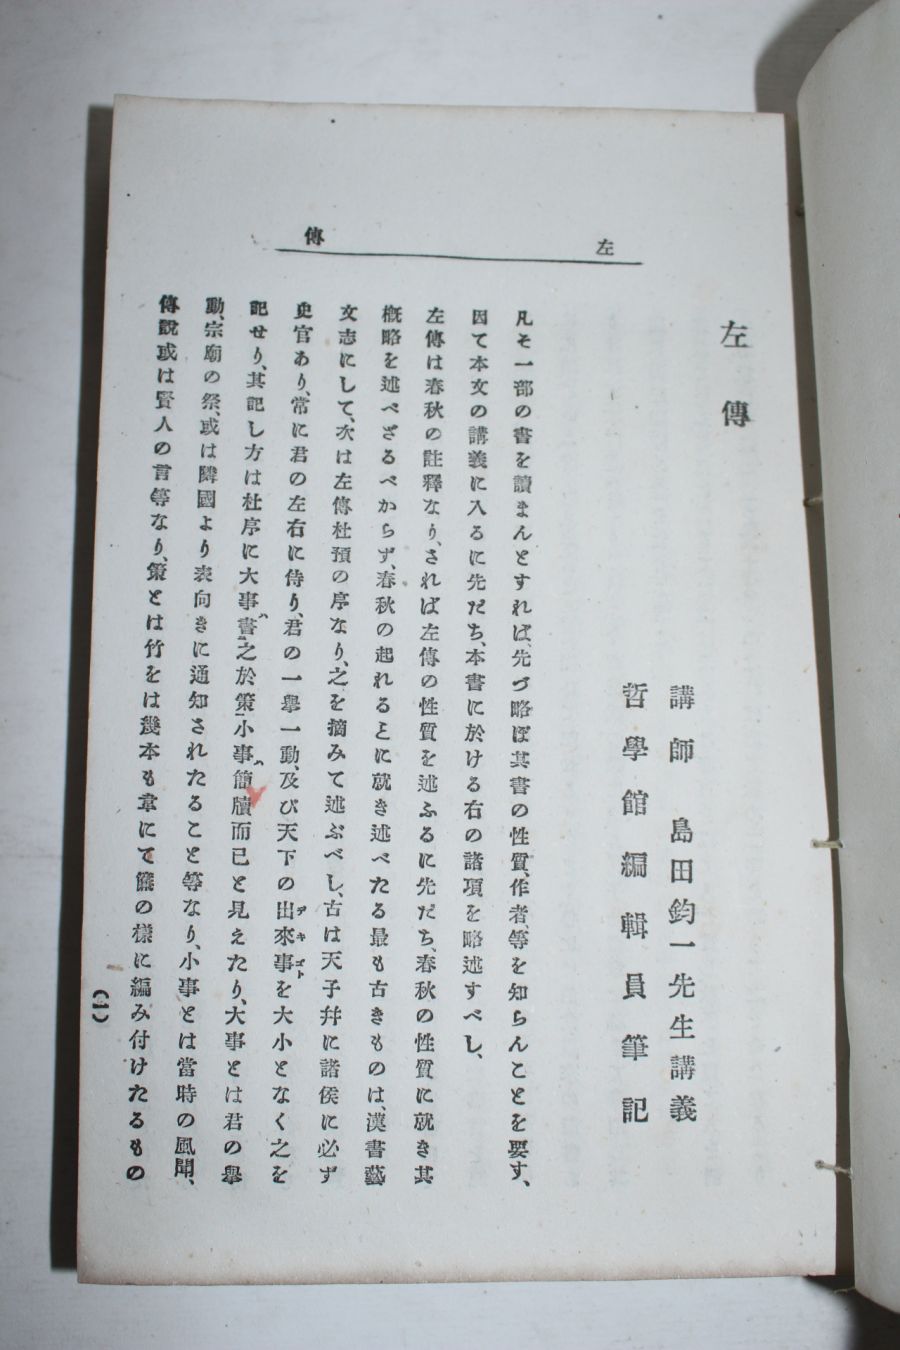 左傳
左傳
講師 島田鈞一先生講義
哲學館編輯員筆記
凡そ一部の書を讀まんとすれば、先づ略ぼ其書の性質、作者、等を知らんことを要す、
因て本文の講義に入るに先だち、本書に於ける右の諸項を略述すべし、
左傳は春秋の註釋なり、されば左傳の性質を述ふるに先だち、春秋の性質に就き其
槪略を述べざるべからず、春秋の起れるとに就き述べたる最も古きものは、漢書藝
文志にして、次は左傳杜預の序なり、之を摘みて述ぶべし、古は天子幷に諸侯に必ず
史官あり、常に君の左右に侍り、君の一擧一動、及び天下の出來事デキゴトを大小となく之を
記せり、其記し方は杜序に大事ハ書二之於策一小事ハ簡牘而已と見えたり、大事とは君の擧
動、宗廟の祭、或は隣國より表向きに通知されたること等なり、小事とは當時の風聞、
傳說或は賢人の言等なり、策とは竹をは幾本も韋にて簾の樣に編み付けたるもの
（一）